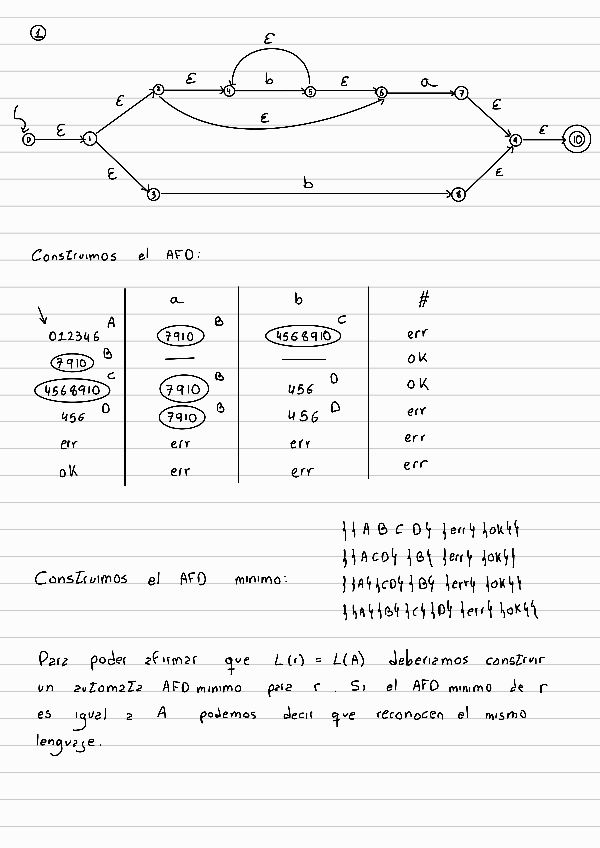 1
ε
ε b ε a
2 4 5 6 7
ε ε ε
0 ε 1 9 ε 10
ε b ε
3 8
Construimos el AFD:
a b #
012346 A 7910 B 4568910 C err
7910 B — — ok
4568910 C 7910 B 456 D ok
456 D 7910 B 456 D err
err err err err
ok err err err
{{A B C D} {err} {ok}}
{{A C D} {B} {err} {ok}}
Construimos el AFD minimo: {{A} {CD} {B} {err} {ok}}
{{A} {B} {C} {D} {err} {ok}}
Para poder afirmar que L(r) = L(A) deberiamos construir
un automata AFD minimo para r. Si el AFD minimo de r
es igual a A podemos decir que reconocen el mismo
lenguaje.